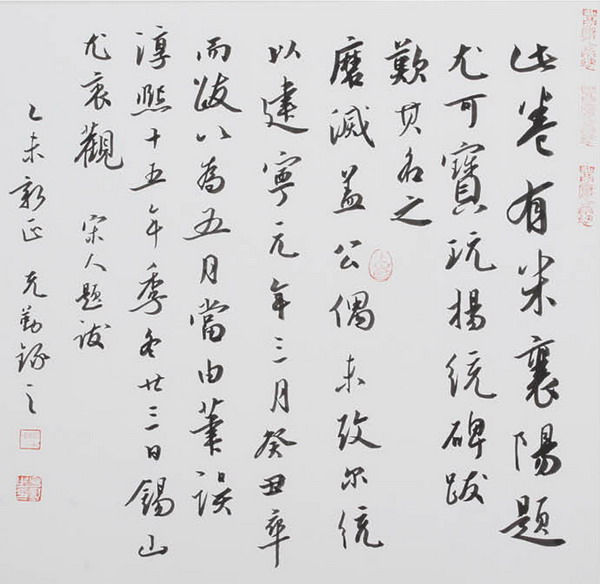 此卷有米襄陽題
尤可寶玩楊統碑跋
歎其名之
磨滅蓋公偶未攷尔統
以建寧元年三月癸丑卒
而跋以為五月當由筆誤
淳熙十五年季冬廿三日錫山
尤袤觀 宋人題跋
乙未新正 克勤錄之